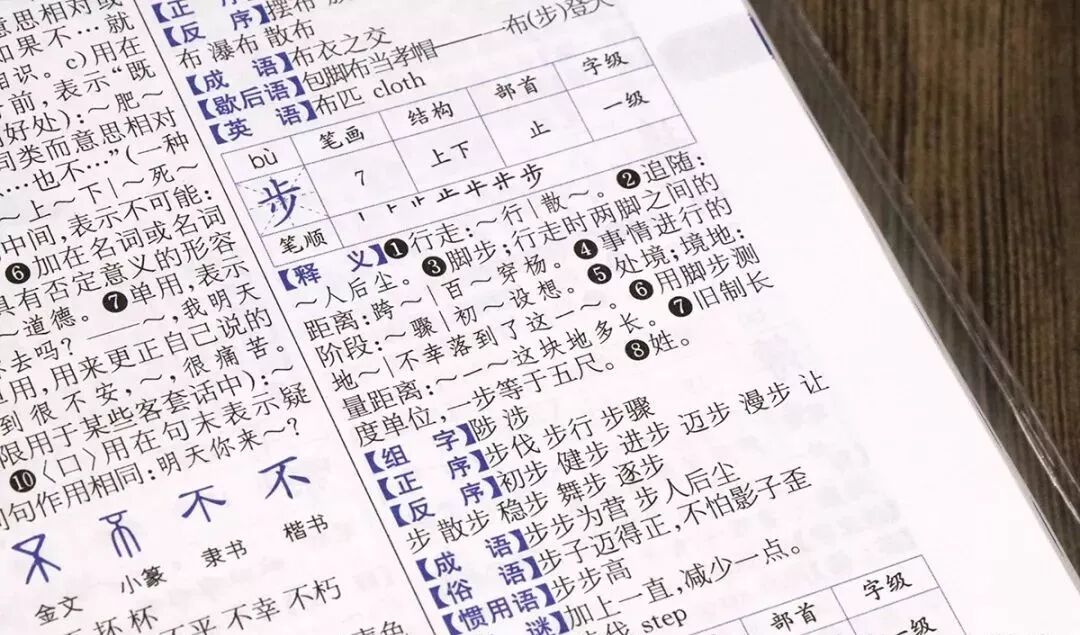 意思相对或
如果不…就
相识。c)用在
前,表示“既
好处):~肥~
同类而意思相对
…也不…”(一种
~上~下|~死~
中间,表示不可能:
❻加在名词或名词
具有否定意义的形容
~道德。❼单用,表示
去吗?——~,我明天
用,用来更正自己说的
到很不安,~,很痛苦。
限用于某些客套话中):~
❿〈口〉用在句末表示疑
句作用相同:明天你来~?
不 不 不 不
金文 小篆 隶书 楷书
坏 杯
不平 不幸 不朽
【正 序】
【反 序】摆布
布 瀑布 散布
【成 语】布衣之交
【歇后语】包脚布当孝帽——一布(步)登天
【英 语】布匹 cloth
bù 笔画 结构 部首 字级
步 7 上下 止 一级
笔顺
【释 义】❶行走:~行|散~。❷追随:
~人后尘。❸脚步;行走时两脚之间的
距离:跨~|百~穿杨。❹事情进行的
阶段:~骤|初~设想。❺处境;境地:
地~|不幸落到了这一~。❻用脚步测
量距离:~一~这块地多长。❼旧制长
度单位,一步等于五尺。❽姓。
【组 字】陟 涉
【正 序】步伐 步行 步骤
【反 序】初步 健步 进步 迈步 漫步 让
步 散步 稳步 舞步 逐步
【成 语】步步为营 步人后尘
【俗 语】步子迈得正,不怕影子歪
【惯用语】步步高
谜】加上一直,减少一点。
步伐 step
部首 字级
一级